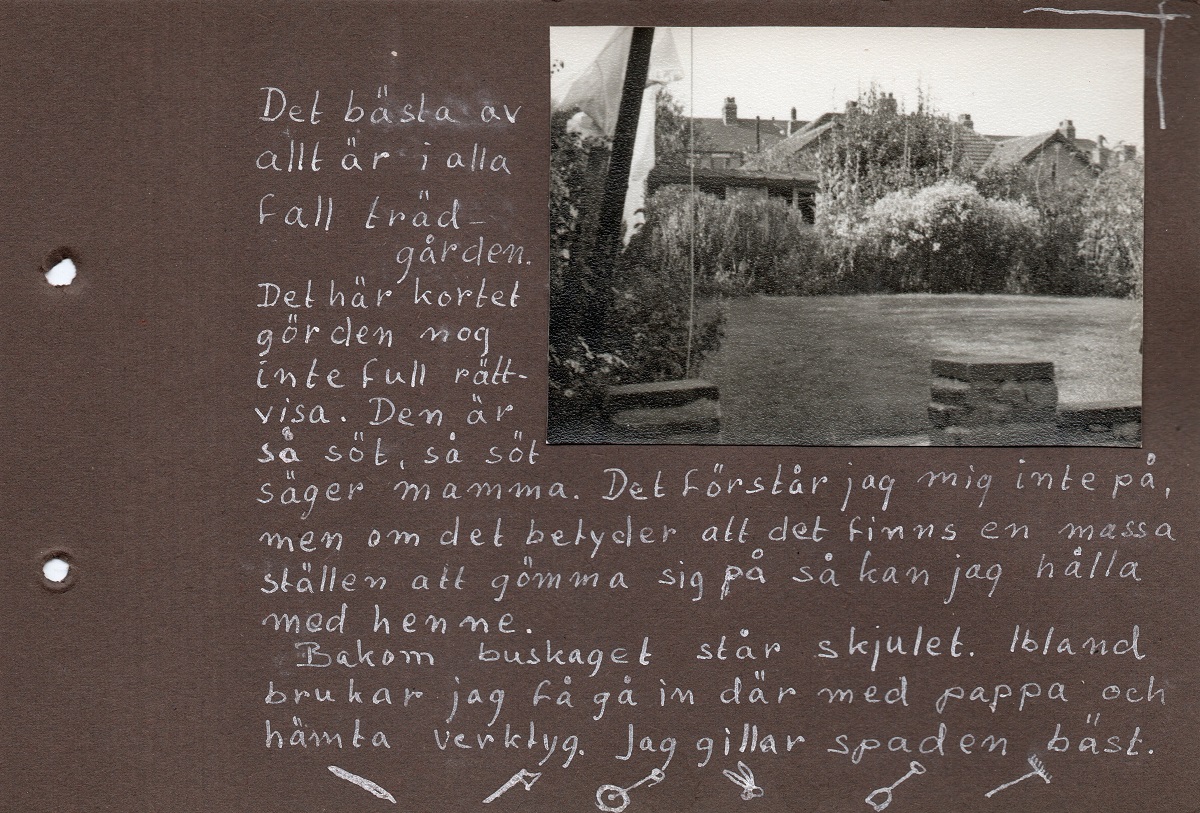 Det bästa av
allt är i alla
fall träd-
gården.
Det här kortet
gör den nog
inte full rätt-
visa. Den är
så söt, så söt
säger mamma. Det förstår jag mig inte på,
men om det betyder att det finns en massa
ställen att gömma sig på så kan jag hålla
med henne.
Bakom buskaget står skjulet. Ibland
brukar jag få gå in där med pappa och
hämta verktyg. Jag gillar spaden bäst.